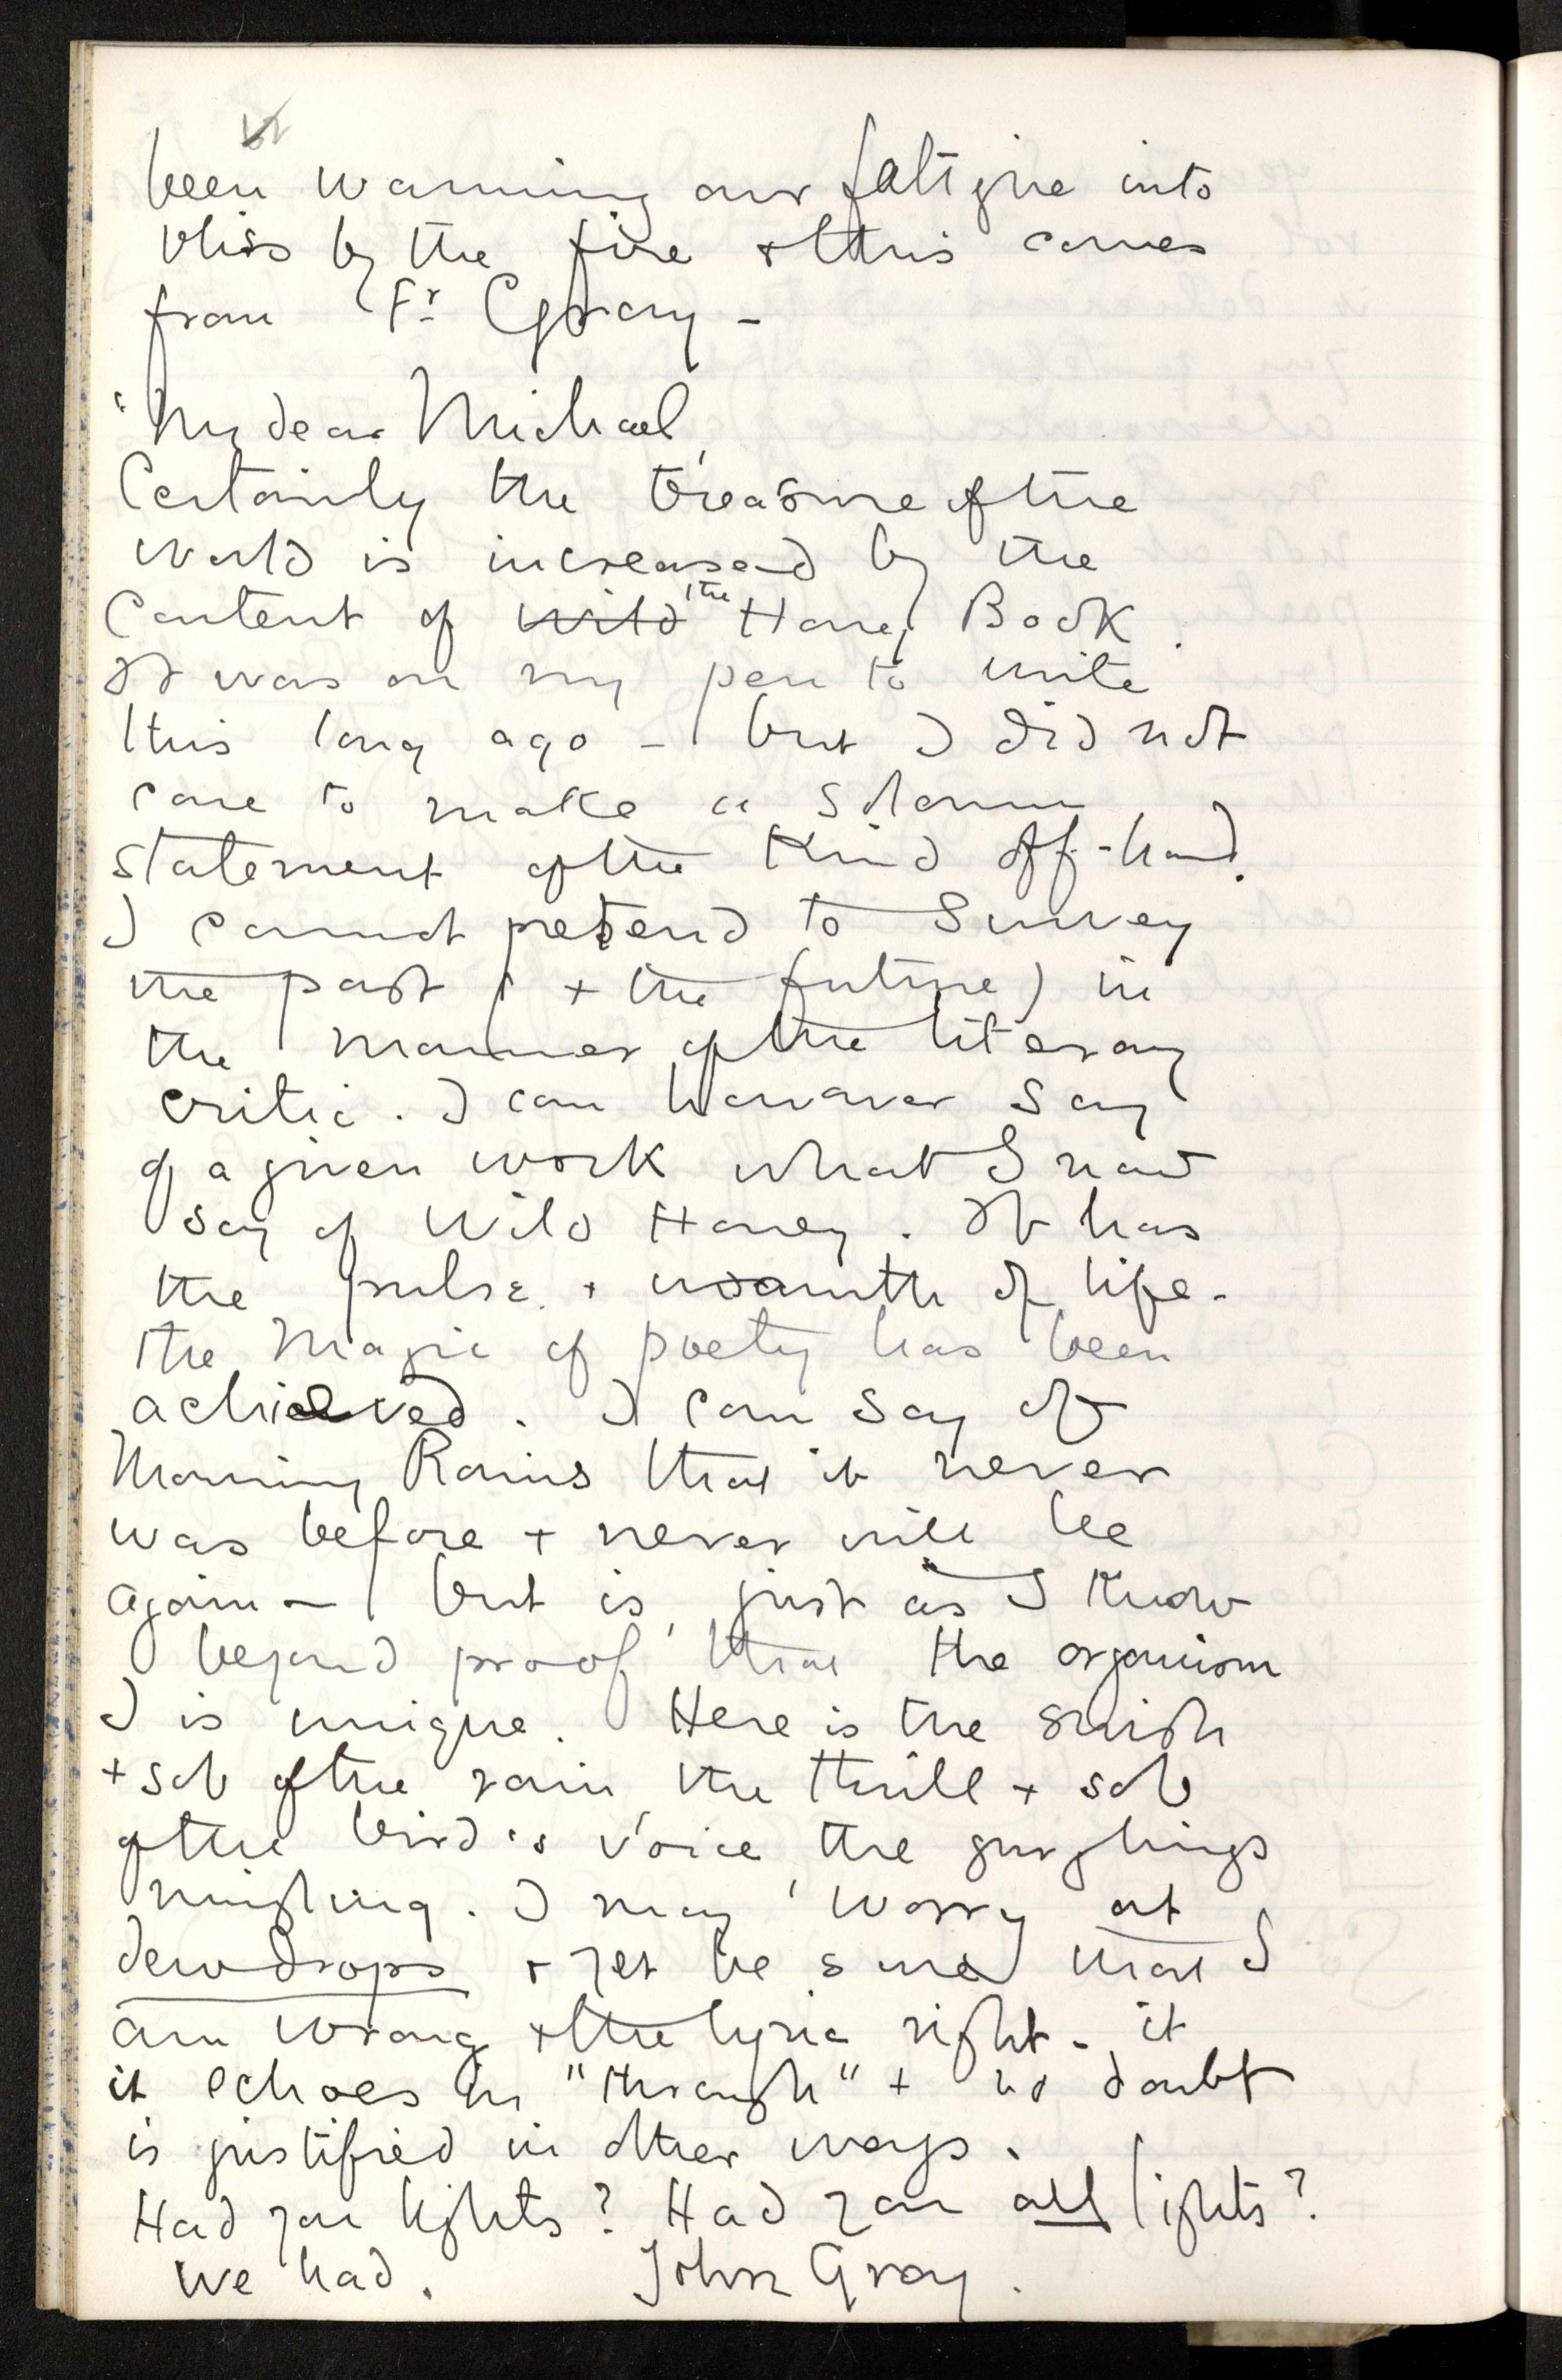 been warming our fatigue into
bliss by the fire + this comes
from Fr Gray -
"My dear Michael,
Certainly the treasure of the
world is increased by the
content of Wild the Honey Book.
It was on my pen to write
this long ago - but I did not
care to make a solemn
statement of the kind off-hand.
I cannot pretend to survey
the past (+ the future) in
the manner of the literary
critic. I can however say
of a given work what I now
say of Wild Honey. It has
the pulse + warmth of life.
The magic of poetry has been
achieved. I can say of
Morning Rains that it never
was before + never will be
again - but is, just as I know
beyond proof that the organism
I is unique. Here is the swish
+ sob of the rain, the thrill + sob
of the bird's voice, the gurglings
mingling. I may worry at
dewdrops + yet be sure that I
am wrong + the lyric right - it
it echoes in "through" + no doubt
is justified in other ways.
Had you lights? Had you all lights?
We had. John Gray.